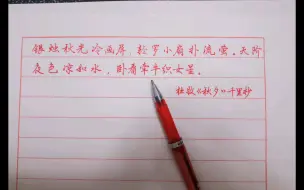 银烛秋光冷画屏,轻罗小扇扑流萤。天阶
夜色凉如水,卧看牵牛织女星。
杜牧《秋夕》千里抄